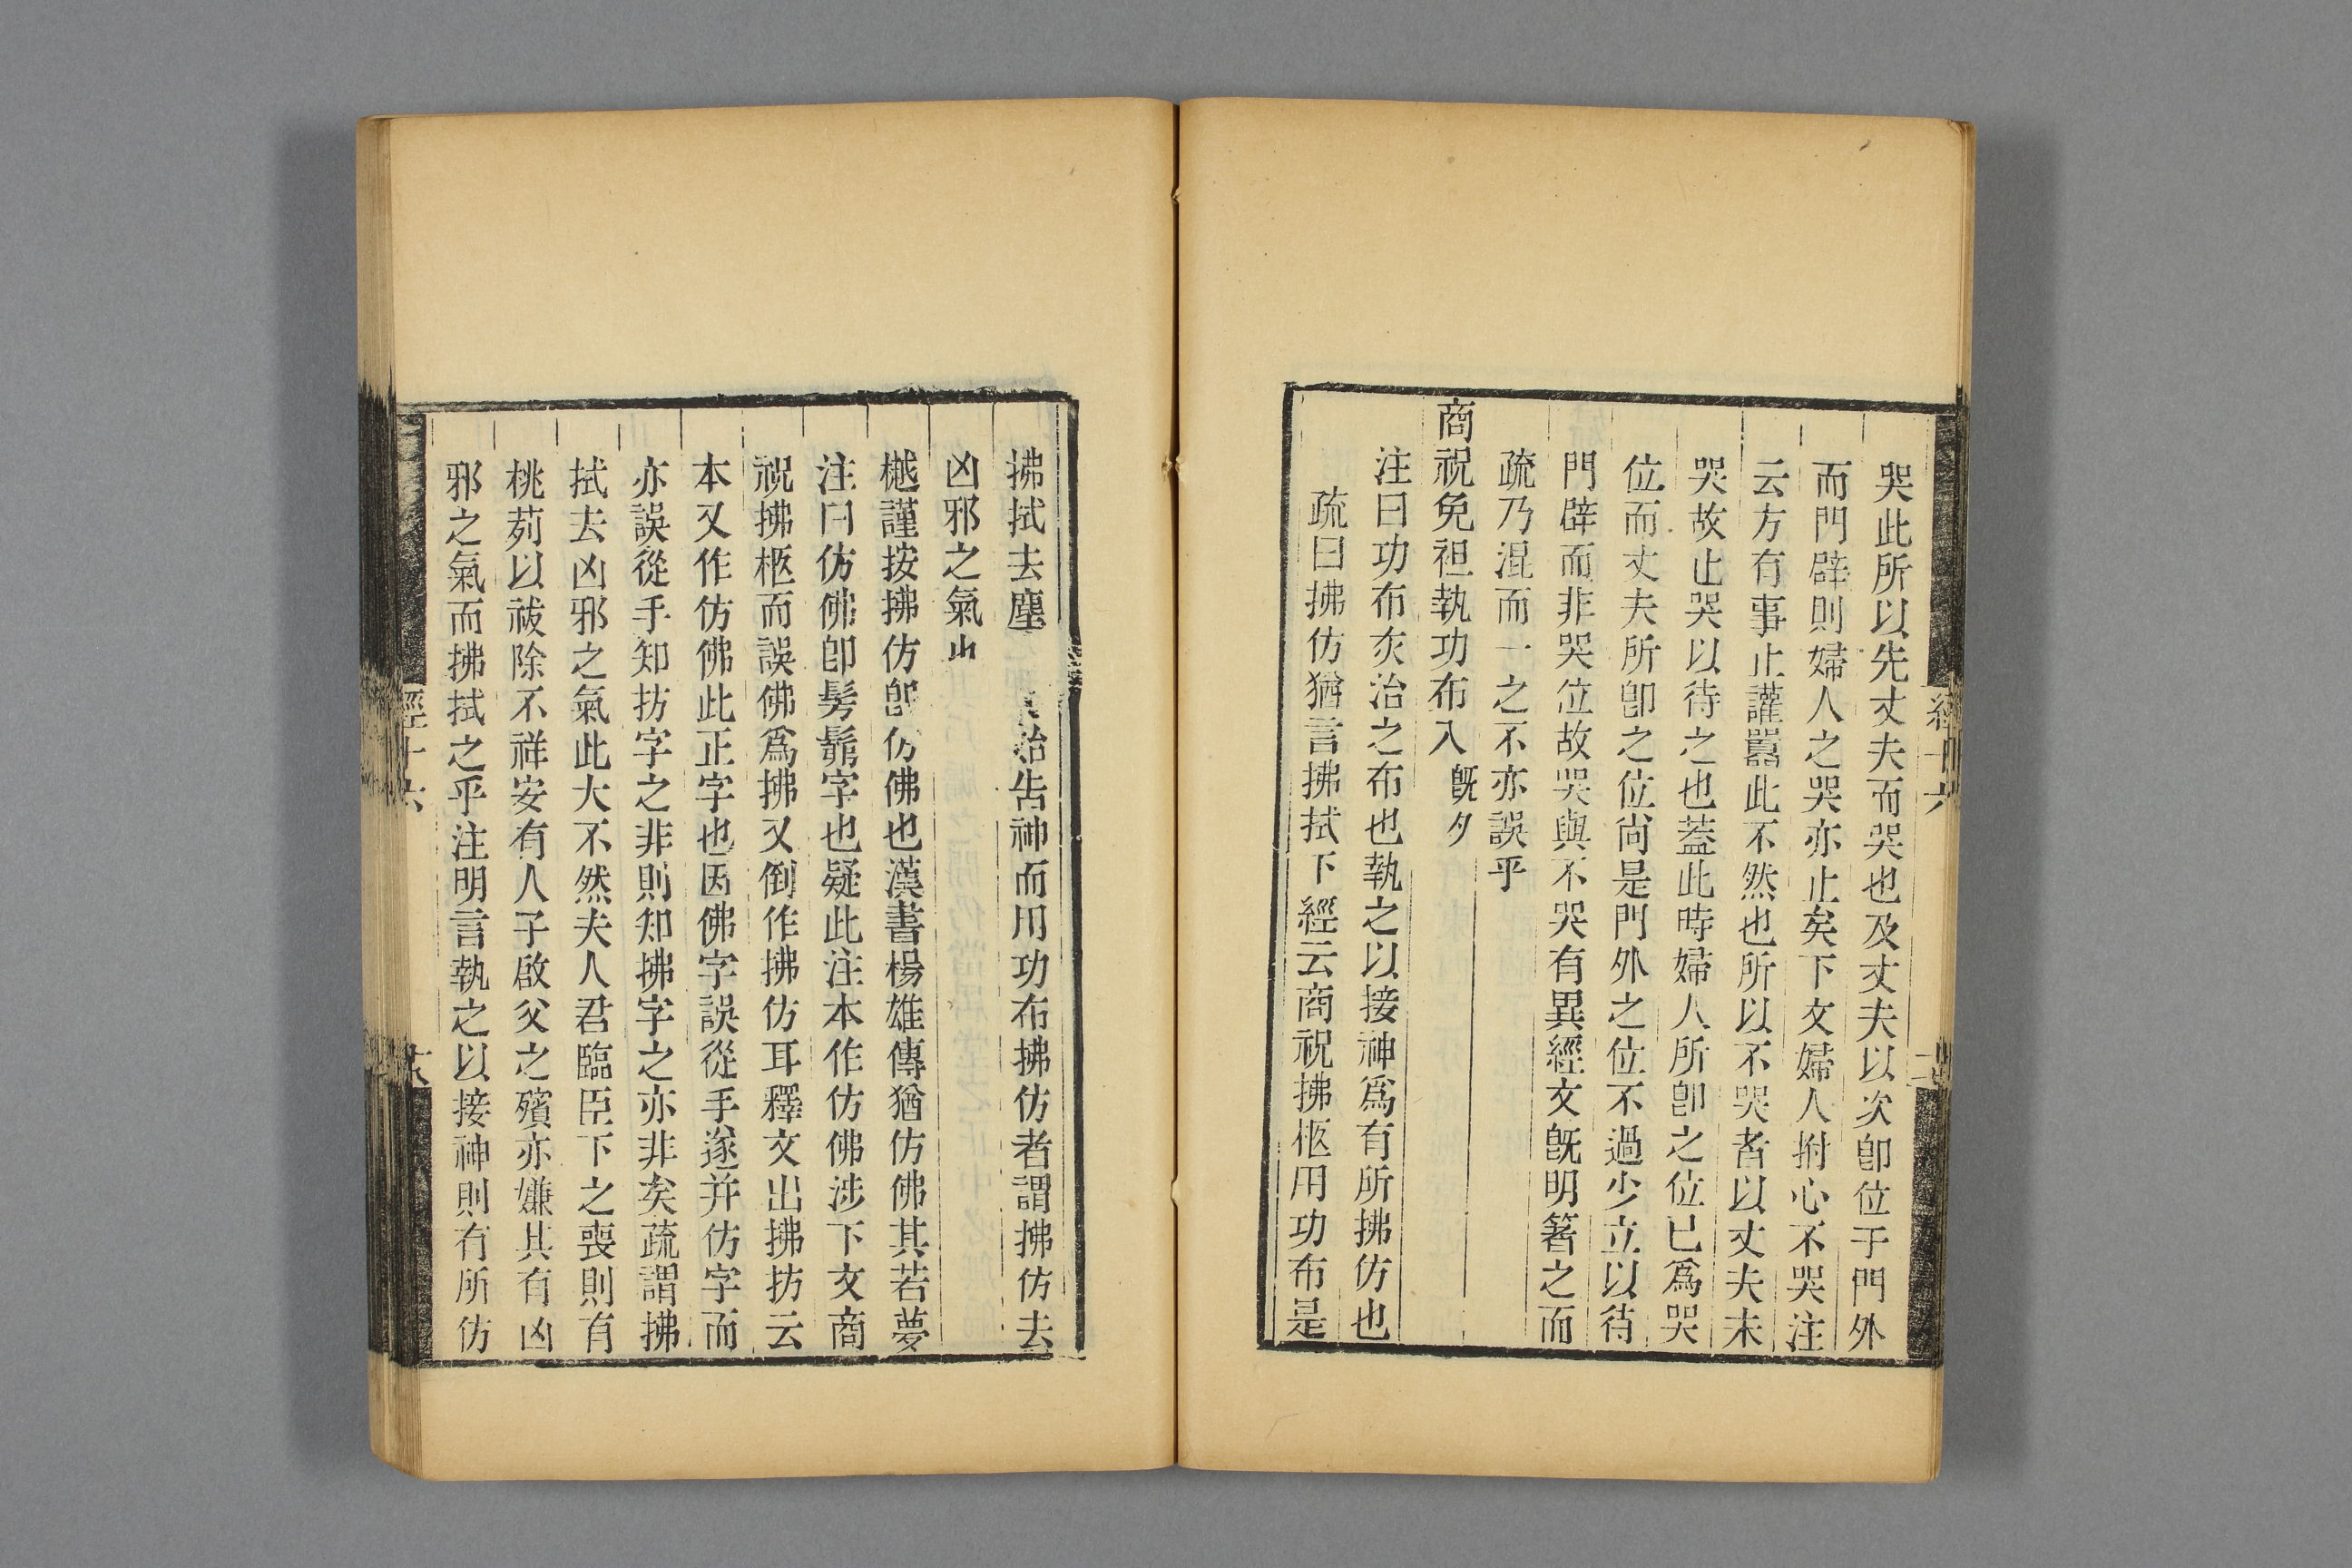 哭此所以先丈夫而哭也及丈夫以次卽位于門外
而門辟則婦人之哭亦止矣下文婦人拊心不哭注
云方有事止讙囂此不然也所以不哭者以丈夫未
哭故止哭以待之也蓋此時婦人所卽之位已爲哭
位而丈夫所卽之位尙是門外之位不過少立以待
門辟而非哭位故哭與不哭有異經文旣明箸之而
疏乃混而一之不亦誤乎
商祝免袒執功布入 旣夕
注曰功布灰治之布也執之以接神爲有所拂仿也
疏曰拂仿猶言拂拭下經云商祝拂柩用功布是
拂拭去塵 治告神而用功布拂仿者謂拂仿去
凶邪之氣
樾謹按拂仿卽仿佛也漢書楊雄傳猶仿佛其若夢
注曰仿佛卽髣髴字也疑此注本作仿佛涉下文商
祝拂柩而誤佛爲拂又倒作拂仿耳釋文出拂扐云
本又作仿佛此正字也因佛字誤從手遂幷仿字而
亦誤從手知扐字之非則知拂字之亦非矣疏謂拂
拭去凶邪之氣此大不然夫人君臨臣下之喪則有
桃茢以祓除不祥安有人子啟父之殯亦嫌其有凶
邪之氣而拂拭之乎注明言執之以接神則有所仿
經十六
經十六